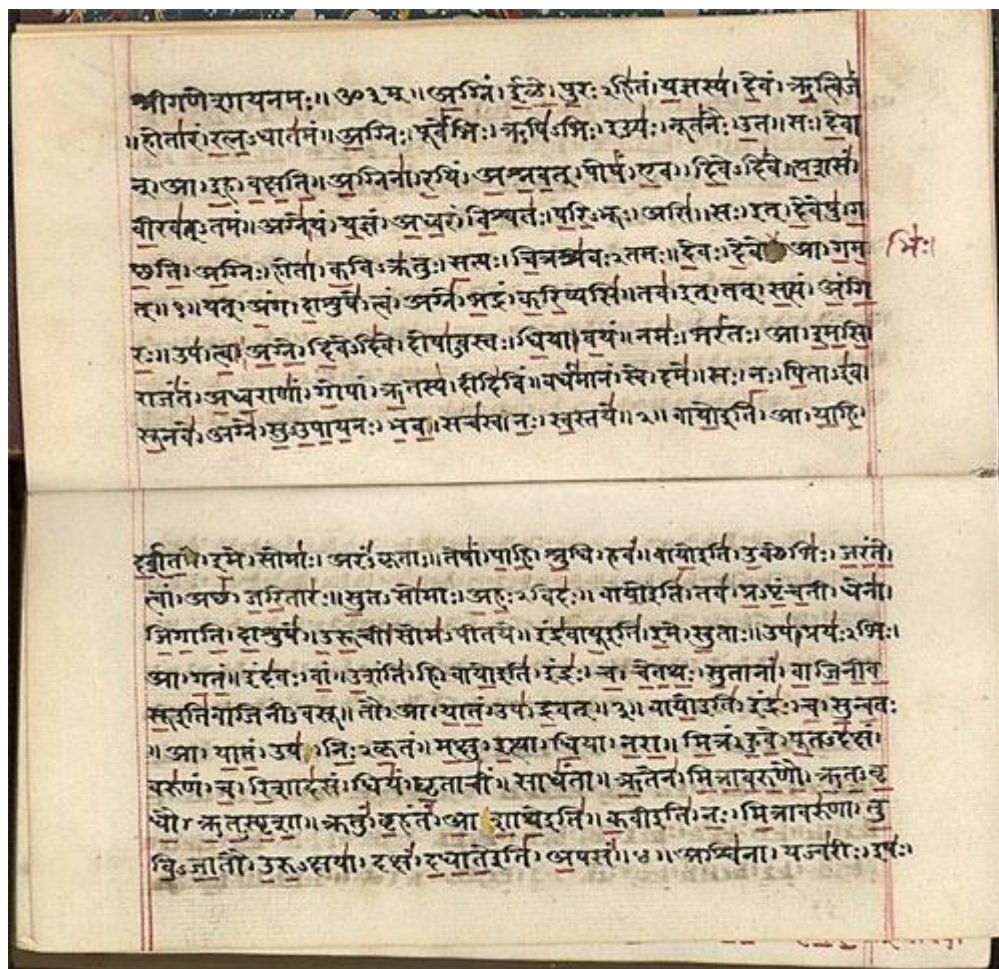 श्रीगणेशायनमः॥ॐ३म्॥अग्निं।ईळे।पुरःऽहितं।यज्ञस्य।देवं।ऋत्विजं
॥होतारं।रत्नऽधातमं॥अग्निः।पूर्वेभिः।ऋषिऽभिः।ईड्यः।नूतनैः।उत॥सः।देवा
न्।आ।इह।वक्षति॥अग्निना।रयिं।अश्नवत्।पोषं।एव।दिवेऽदिवे॥यशसं
वीरवत्ऽतमं॥अग्ने।यं।यज्ञं।अध्वरं।विश्वतः।परिऽभूः।असि॥सः।इत्।देवेषु।ग
च्छति।अग्निः।होता।कविऽक्रतुः।सत्यः।चित्रश्रवःऽतमः॥देवः।देवे।आ।गम
भिः।
त्॥१॥यत्।अंग।दाशुषे।त्वं।अग्ने।भद्रं।करिष्यसि॥तव।इत्।तत्।सत्यं।अंगि
रः॥उप।त्वा।अग्ने।दिवेऽदिवे।दोषाऽवस्तः।धिया।वयं॥नमः।भरंतः।आ।इमसि
राजंतं।अध्वराणां।गोपां।ऋतस्य।दीदिविं॥वर्धमानं।स्वे।दमे॥सः।नः।पिताऽइव
सूनवे।अग्ने।सुऽउपायनः।भव॥सचस्व।नः।स्वस्तये॥२॥वायोइति।आ।याहि
दर्शत।इमे।सोमाः।अरंऽकृताः॥तेषां।पाहि।श्रुधि।हवं॥वायोइति।उक्थेभिः।जरंते
त्वां।अच्छ।जरितारः॥सुतऽसोमाः।अहःऽविदः॥वायोइति।तव।प्रऽपृंचती।धेना।
जिगाति।दाशुषे॥उरूची।सोमऽपीतये॥इंद्रवायूइति।इमे।सुताः॥उप।प्रयःऽभिः।
आ।गतं॥इंदवः।वां।उशंति।हि।वायोइति।इंद्रः।च।चेतथः।सुतानां।वाजिनीव
सूइतिवाजिनीऽवसू॥तौ।आ।यातं।उप।द्रवत्॥३॥वायोइति।इंद्रः।च।सुन्वतः
॥आ।यातं।उप।निःऽकृतं॥मक्षु।इत्था।धिया।नरा॥मित्रं।हुवे।पूतऽदक्षं
वरुणं।च।रिशादसं॥धियं।घृताचीं।साधंता॥ऋतेन।मित्रावरुणौ।ऋतऽवृ
धौ।ऋतऽस्पृशा॥क्रतुं।बृहंतं।आशाथेइति॥कवीइति।नः।मित्रावरुणा।तु
विऽजातौ।उरुऽक्षया।दक्षं।दधातेइति।अपसं॥४॥अश्विना।यज्वरीः।इषः।